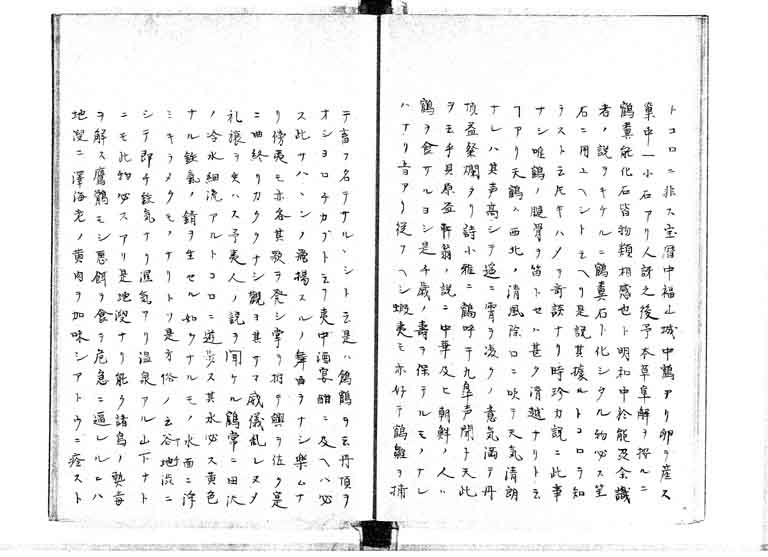 トコロニ非ス宝暦中福山城中鶴アリ卵ヲ産ス
巣中一小石アリ人訝之後予本草阜解ヲ按ルニ
鶴糞能化石皆物類相感也ト明和中於能及全識
者ノ説ヲキケルニ鶴糞石ト化シタル物必ス笙
石ニ用ユヘシト云ヘリ是説其據ルトコロヲ知
ラスト云圧キハノヲ奇話ナリ時珍カ説ニ此事
ナシ唯鶴ノ腿骨ヲ笛トセハ甚タ清越ナリト云
フアリ天鶴ハ西北ノ清風除ロニ吹テ天気清朗
ナレハ其声高シテ遥ニ霄ヲ凌クノ意気満テ丹
頂益粲爛タリ詩小雅ニ鶴呼于九皐声聞于天此
ヲモヲ乎貝原益軒翁ノ説ニ中華及ヒ朝鮮ノ人ハ
鶴ヲ食ケルヨシ是千歳ノ壽ヲ保テルモノナレ
ハナリ音アリ従フヘシ蝦夷モ亦好テ鶴雛ヲ捕
テ畜フ名テサル、シト云是ハ鶴鶴ヲ云丹頂ヲ
オショロチカプト云ヲ夷中酒宴酣ニ及ヘハ必
ス此サハ、ンノ飛揚スルノ舞曲ヲナシ樂ムナ
リ傍夷モ亦各其歌ヲ発シ掌リ拊テ興ヲ佐ク是
ニ曲終リカククナシ觀ヲ其サマ威儀乱レヌメ
礼譲ヲ失ハス予夷人ノ説ヲ聞ケル鶴常ニ田沢
ノ冷水細流アルトコロニ遊歩ス其水必ス黄色
ナル鉄氣ノ錆ヲ生セル如クナルモノ水面ニ浮
ミキラメクモノナリトソ是方俗ノ云谷地渋ニ
シテ即チ鉄気ナリ湿気アリ温泉アル山下ナト
ニモ此物必スアリ是地溲ナリ能ク諸鳥ノ熱毒
ヲ解ス鷹鶴モシ悪餌ヲ食テ危急ニ逼レルニハ
地溲ニ澤海老ノ黄肉ヲ加味シアトウニ痊スト